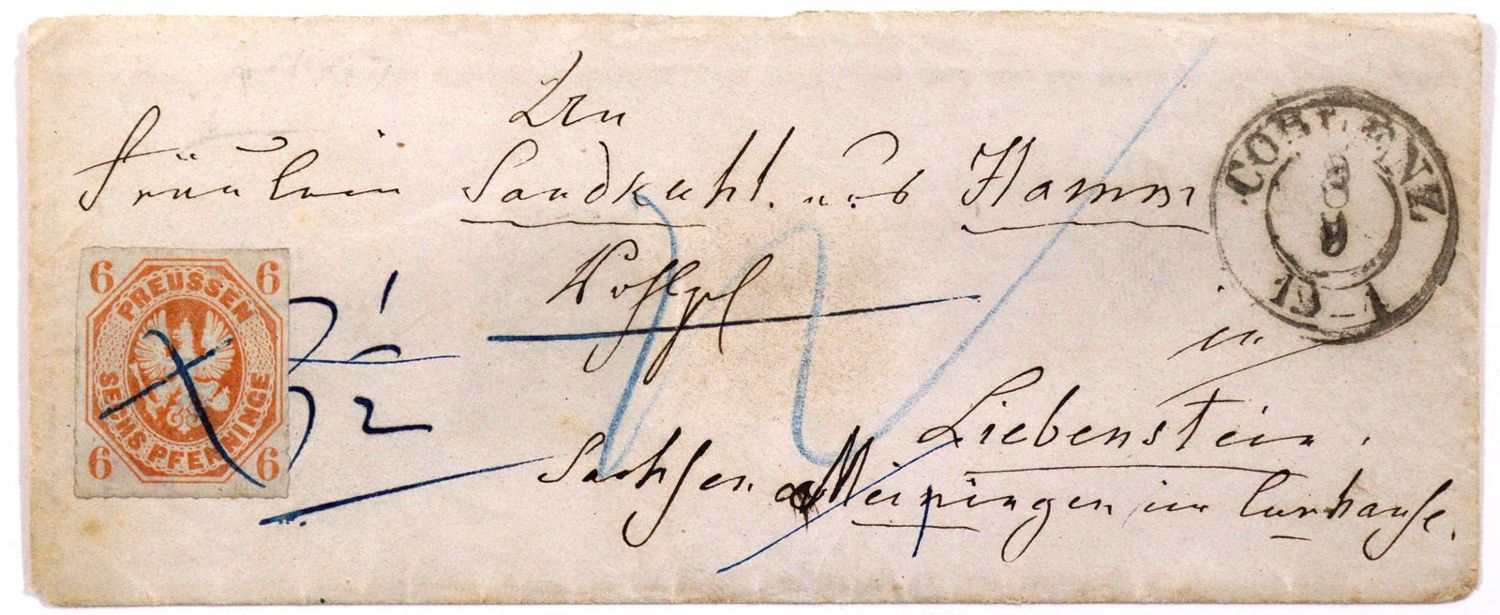 Fräulein Sandkuhl. aus Hamm
in
Liebenstein.
Sachsen Meiningen im Curhause.
6 6
PREUSSEN
SECHS PFENNINGE
6 6
COBLENZ
8
8